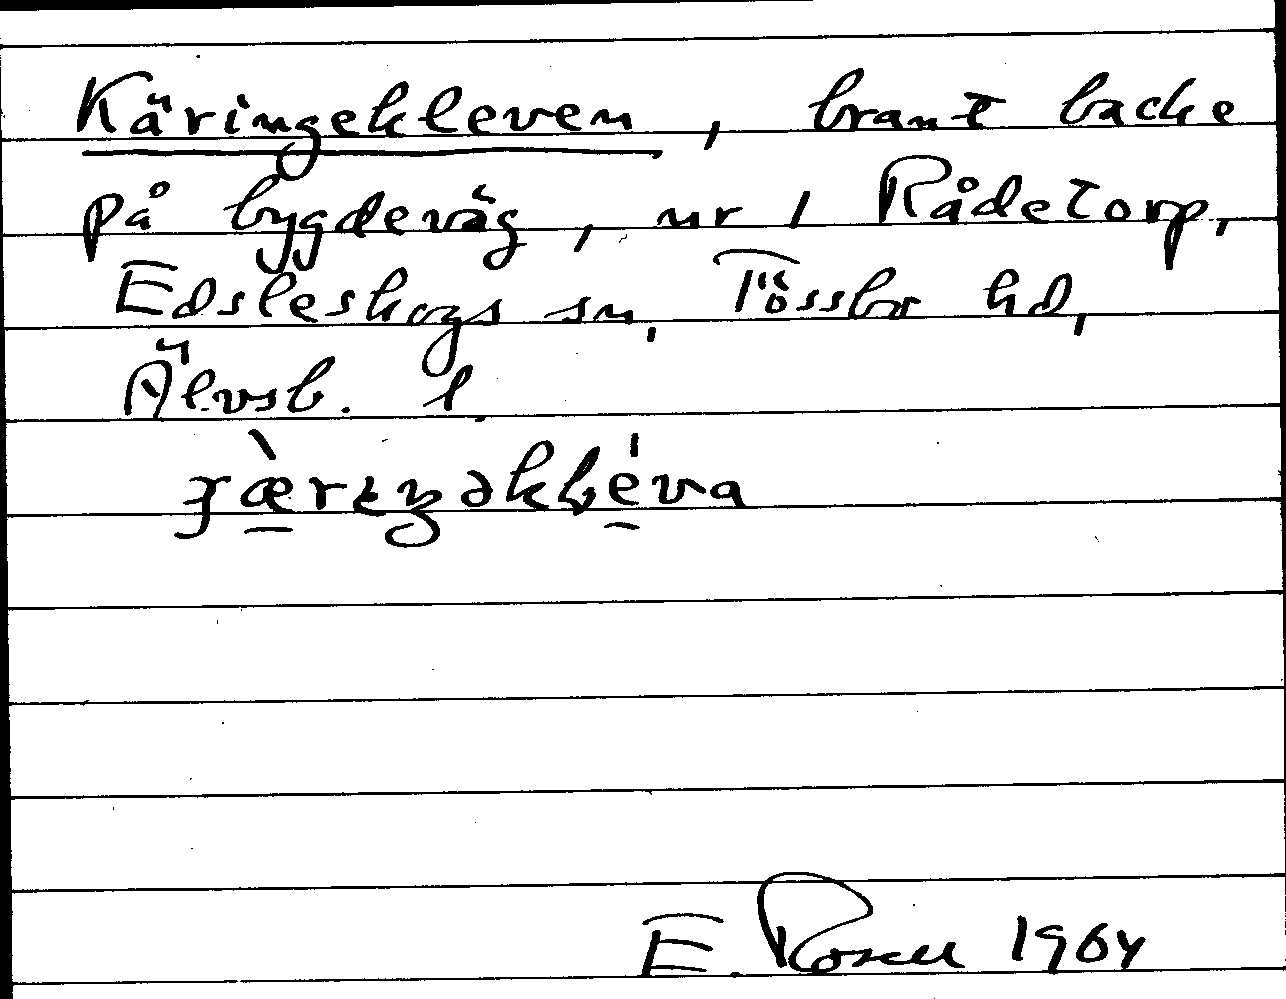 Käringekleven, brant backe
på bygdeväg, nr 1 Rådetorp,
Edsleskogs sn, Tössbo hd,
Älvsb. l.
E. Rosell 1964